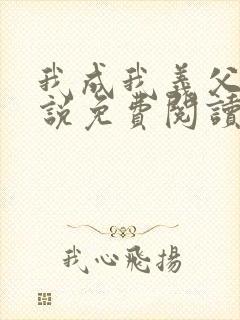 我成我義父
說免費閱讀
我心飛揚